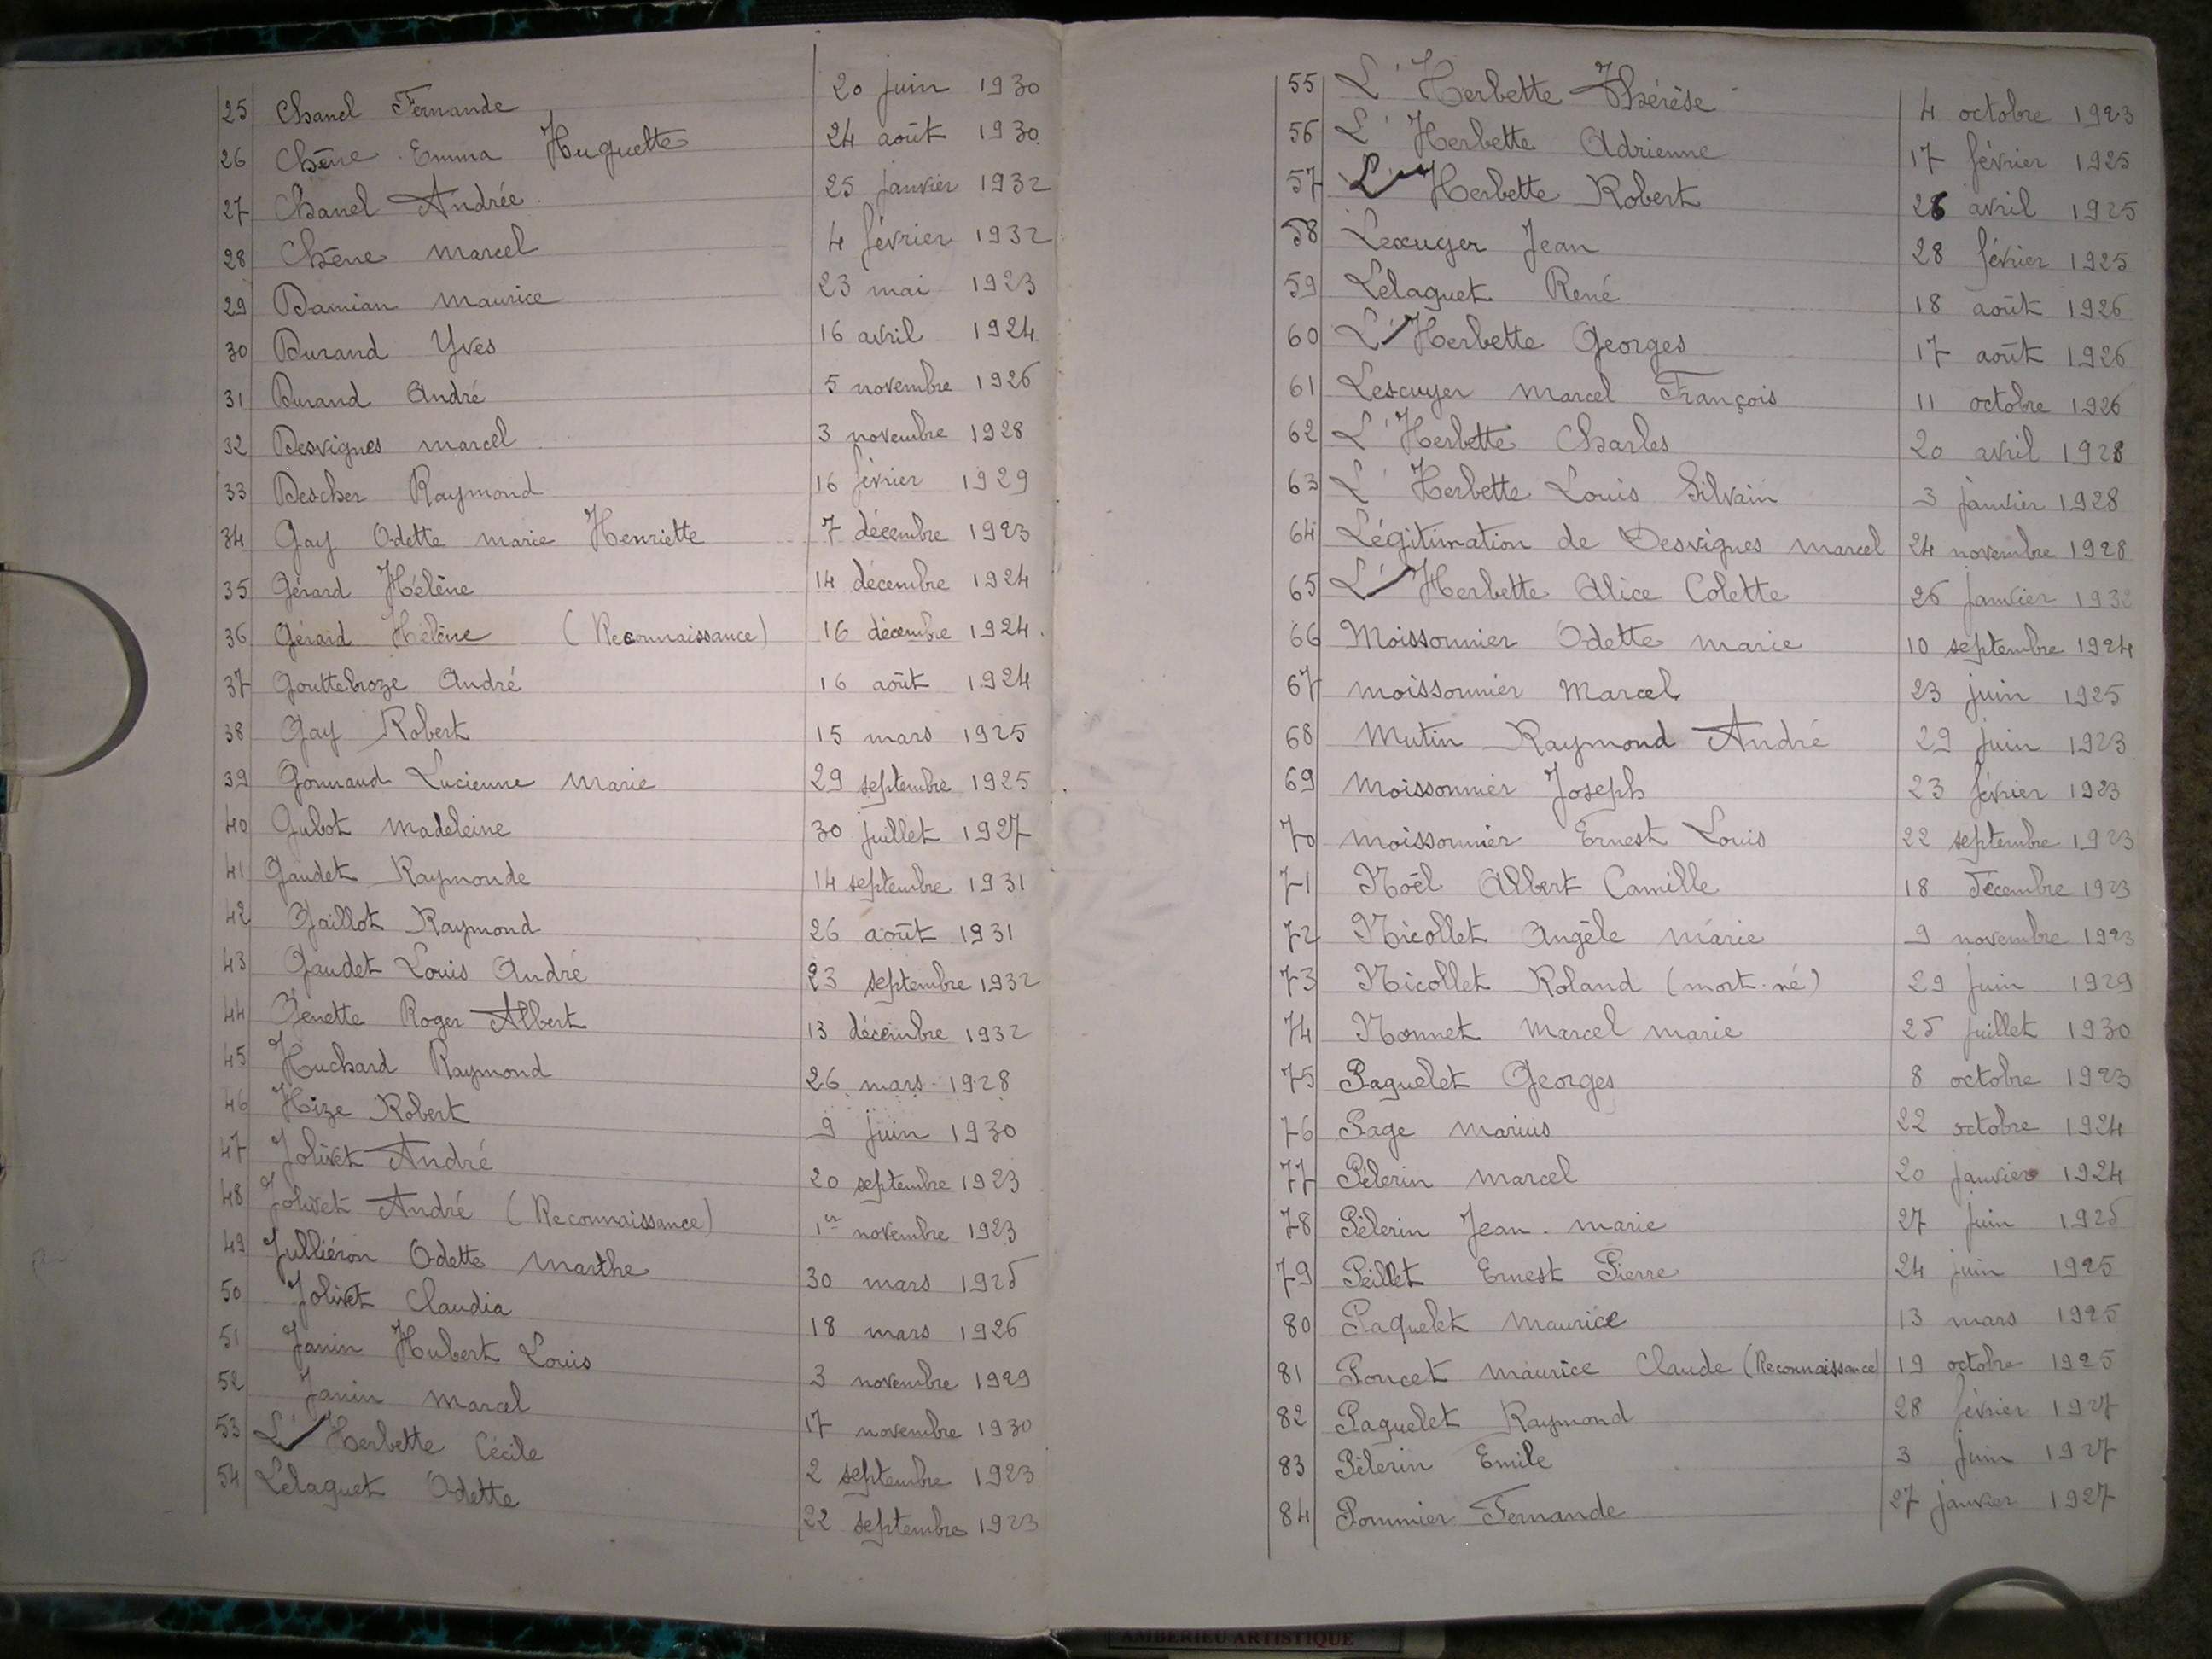 25 Chanel Fernande 20 juin 1930
26 Chêne Emma Huguette 24 août 1930
27 Chanel Andrée 25 janvier 1932
28 Chêne Marcel 4 février 1932
29 Damian Maurice 23 mai 1923
30 Durand Yves 16 avril 1924
31 Durand André 5 novembre 1926
32 Desvignes Marcel 3 novembre 1928
33 Descher Raymond 16 février 1929
34 Gay Odette Marie Henriette 7 décembre 1923
35 Gérard Hélène 14 décembre 1924
36 Gérard Hélène (Reconnaissance) 16 décembre 1924
37 Gouttebroze André 16 août 1924
38 Gay Robert 15 mars 1925
39 Gonnaud Lucienne Marie 29 septembre 1925
40 Gubot Madeleine 30 juillet 1927
41 Gaudet Raymonde 14 septembre 1931
42 Gaillot Raymond 26 août 1931
43 Gaudet Louis André 23 septembre 1932
44 Genette Roger Albert 13 décembre 1932
45 Huchard Raymond 26 mars 1928
46 Hize Robert 9 juin 1930
47 Jolivet André 20 septembre 1923
48 Jolivet André (Reconnaissance) 1er novembre 1923
49 Julliéron Odette Marthe 30 mars 1925
50 Jolivet Claudia 18 mars 1926
51 Janin Hubert Louis 3 novembre 1929
52 Janin Marcel 17 novembre 1930
53 L'Herbette Cécile 2 septembre 1923
54 Lelaguet Odette 22 septembre 1923
55 L'Herbette Thérèse 4 octobre 1923
56 L'Herbette Adrienne 17 février 1925
57 L'Herbette Robert 26 avril 1925
58 Jean 28 février 1925
59 Lelaguet René 18 août 1926
60 L'Herbette Georges 17 août 1926
61 Lescuyer Marcel François 11 octobre 1926
62 L'Herbette Charles 20 avril 1928
63 L'Herbette Louis Silvain 3 janvier 1928
64 Légitimation de Desvignes Marcel 24 novembre 1928
65 L'Herbette Alice Colette 26 janvier
66 Moissonnier Odette Marie 10 septembre 1924
67 Moissonnier Marcel 23 juin 1925
68 Mutin Raymond André 29 juin 1923
69 Moissonnier Joseph 23 février 1923
70 Moissonnier Ernest Louis 22 septembre 1923
71 Noël Albert Camille 18 décembre 1923
72 Nicollet Angèle Marie 9 novembre 1923
73 Nicollet Roland (mort-né) 29 juin 1929
74 Nonnet Marcel Marie 25 juillet 1930
75 Paquelet Georges 8 octobre 1923
76 Page Marius 22 octobre 1924
77 Pélerin Marcel 20 janvier 1924
78 Pélerin Jean-Marie 27 juin 1925
79 Peillet Ernest Pierre 24 juin 1925
80 Paquelet Maurice 13 mars 1925
81 Poncet Maurice Claude (Reconnaissance) 19 octobre 1925
82 Paquelet Raymond 28 février 1927
83 Pélerin Emile 3 juin 1927
84 Pommier Fernande 27 janvier 1927
AMBERIEU ARTISTIQUE